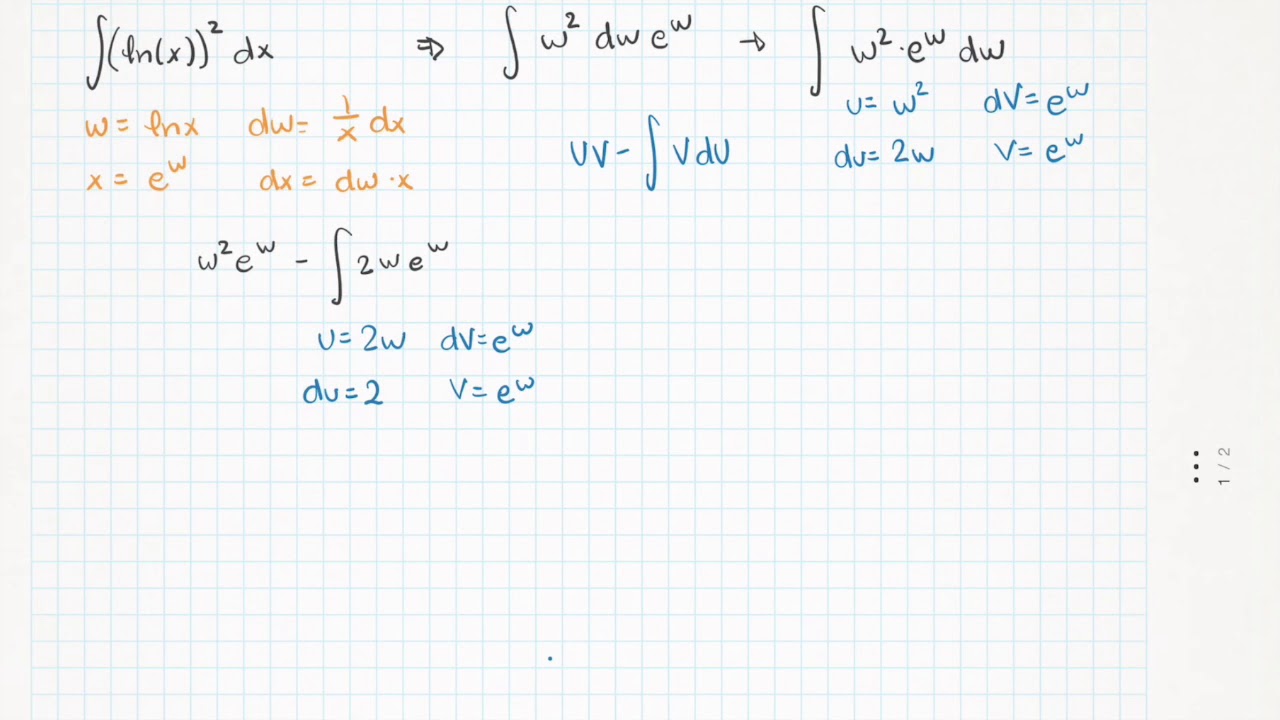 ∫(ln(x))² dx ⇒ ∫ w² dw e^w → ∫ w²·e^w dw
w = lnx dw = 1/x dx
x = e^w dx = dw·x
UV - ∫ V dU
u = w² dV = e^w
du = 2w V = e^w
w² e^w - ∫ 2w e^w
u = 2w dV = e^w
du = 2 V = e^w
1 / 2